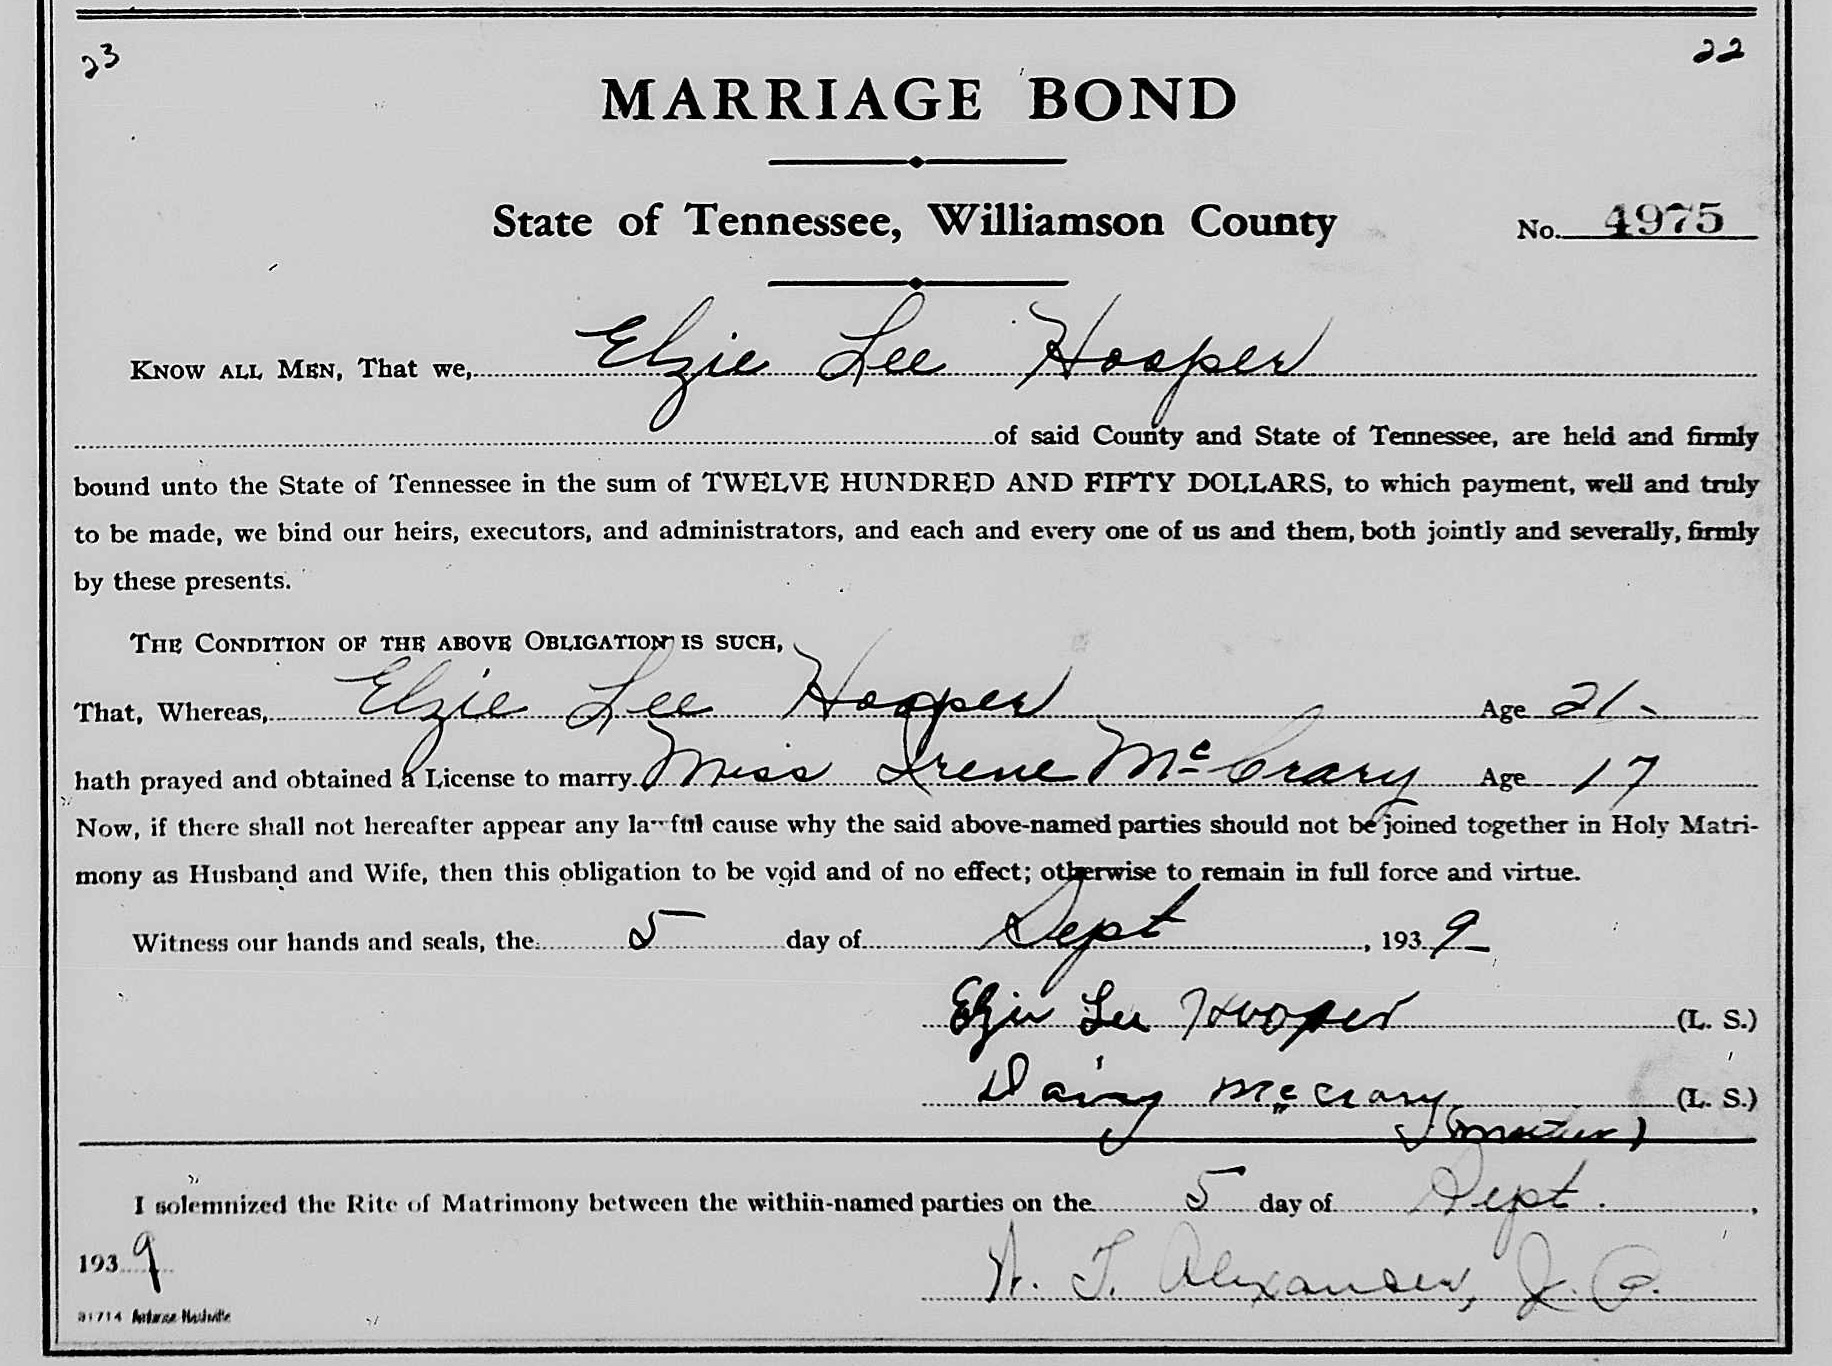 23 22
MARRIAGE BOND
State of Tennessee, Williamson County No. 4975
KNOW ALL MEN, That we, Elzie Lee Hooper
of said County and State of Tennessee, are held and firmly
bound unto the State of Tennessee in the sum of TWELVE HUNDRED AND FIFTY DOLLARS, to which payment, well and truly
to be made, we bind our heirs, executors, and administrators, and each and every one of us and them, both jointly and severally, firmly
by these presents.
THE CONDITION OF THE ABOVE OBLIGATION IS SUCH,
That, Whereas, Elzie Lee Hooper Age 21-
hath prayed and obtained a License to marry Miss Irene McCrary Age 17
Now, if there shall not hereafter appear any lawful cause why the said above-named parties should not be joined together in Holy Matri-
mony as Husband and Wife, then this obligation to be void and of no effect; otherwise to remain in full force and virtue.
Witness our hands and seals, the 5 day of Sept, 1939
Elzie Lee Hooper (L. S.)
Daisy McCrary (L. S.)
(mother)
I solemnized the Rite of Matrimony between the within-named parties on the 5 day of Sept.,
1939
T. Alexander, J. P.
31714